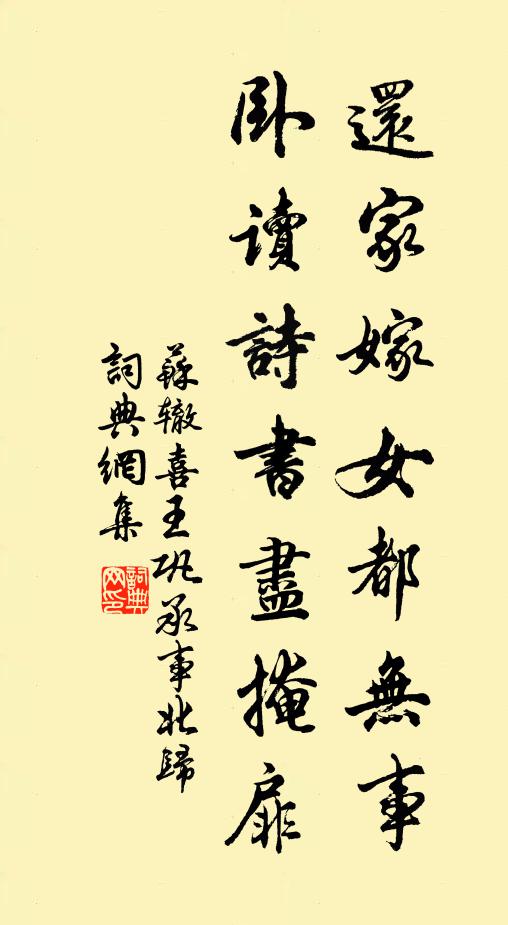 還家嫁女都無事
卧读詩書盡掩扉
蘇辙喜王巩承事北歸
詞典網集
詞典網印